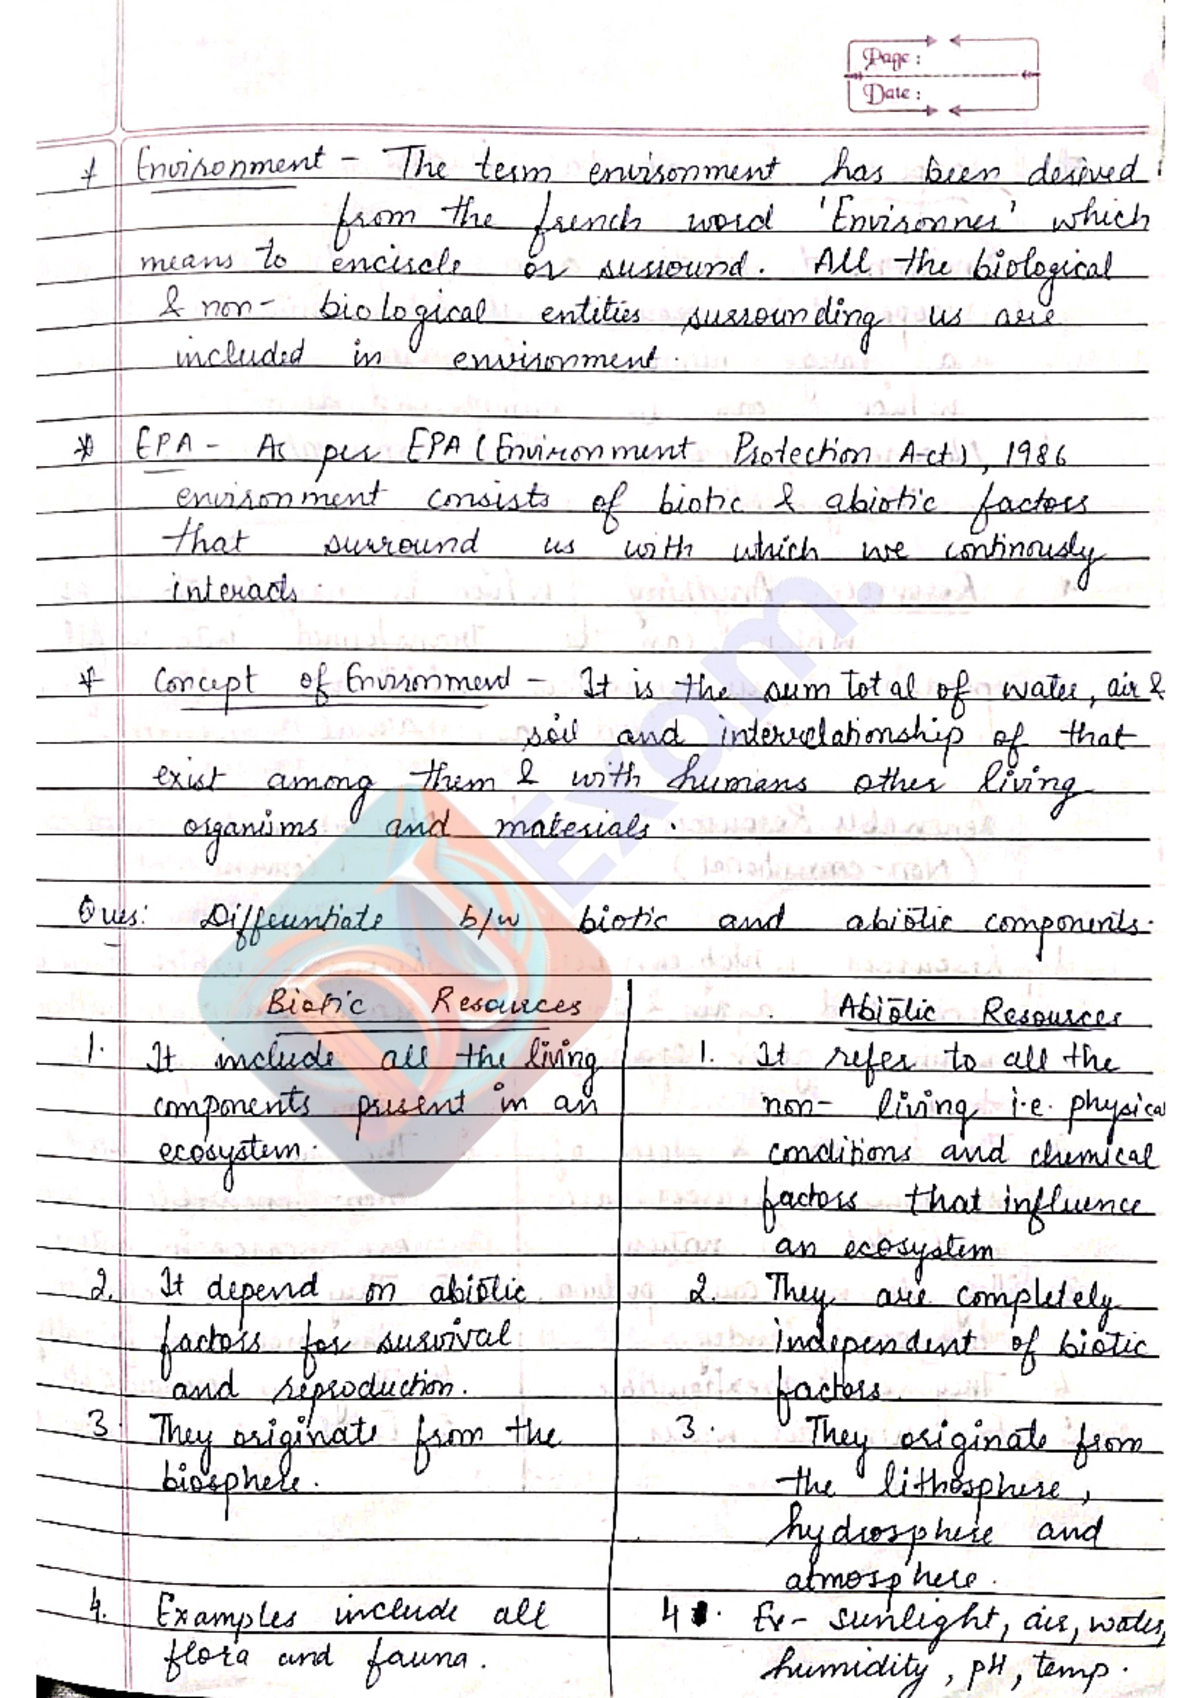 Page :
Date :
* Environment - The term environment has been derived
from the french word 'Environner' which
means to encircle or surround. All the biological
& non- biological entities surrounding us are
included in environment.
* EPA - As per EPA (Environment Protection Act), 1986
environment consists of biotic & abiotic factors
that surround us with which we continously
interacts.
* Concept of Environment - It is the sum total of water, air &
soil and interrelationship of that
exist among them & with humans other living
organisms and materials.
Ques: Differentiate b/w biotic and abiotic components.
Biotic Resources
1. It include all the living
components present in an
ecosystem.
2. It depend on abiotic
factors for survival
and reproduction.
3. They originate from the
biosphere.
4. Examples include all
flora and fauna.
Abiotic Resources
1. It refer to all the
non- living i.e. physical
conditions and chemical
factors that influence
an ecosystem
2. They are completely
independent of biotic
factors.
3. They originate from
the lithosphere,
hydrosphere and
atmosphere.
4. Ex- sunlight, air, water,
humidity, pH, temp.
Exam.